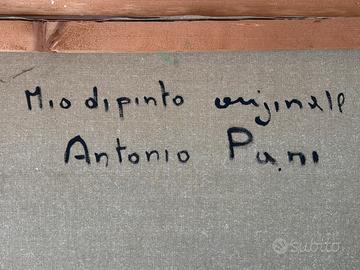 Mio dipinto originale
Antonio Pani
subito